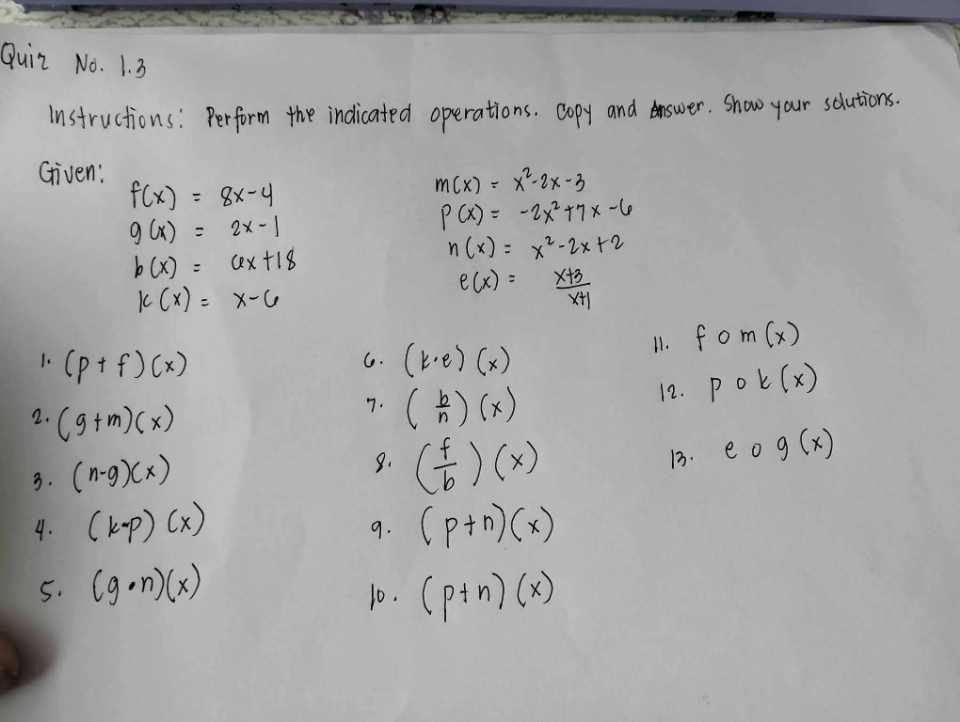 Quiz No. 1.3
Instructions: Perform the indicated operations. Copy and Answer. Show your solutions.
Given:
f(x) = 8x-4
g(x) = 2x-1
b(x) = 6x+18
k(x) = x-6
m(x) = x²-2x-3
p(x) = -2x²+7x-6
n(x) = x²-2x+2
e(x) = x+3/x+1
1. (p+f)(x)
2. (g+m)(x)
3. (n-g)(x)
4. (k-p)(x)
5. (g•n)(x)
6. (k•e)(x)
7. (b/n)(x)
8. (f/b)(x)
9. (p+n)(x)
10. (p+n)(x)
11. f o m(x)
12. p o k(x)
13. e o g(x)